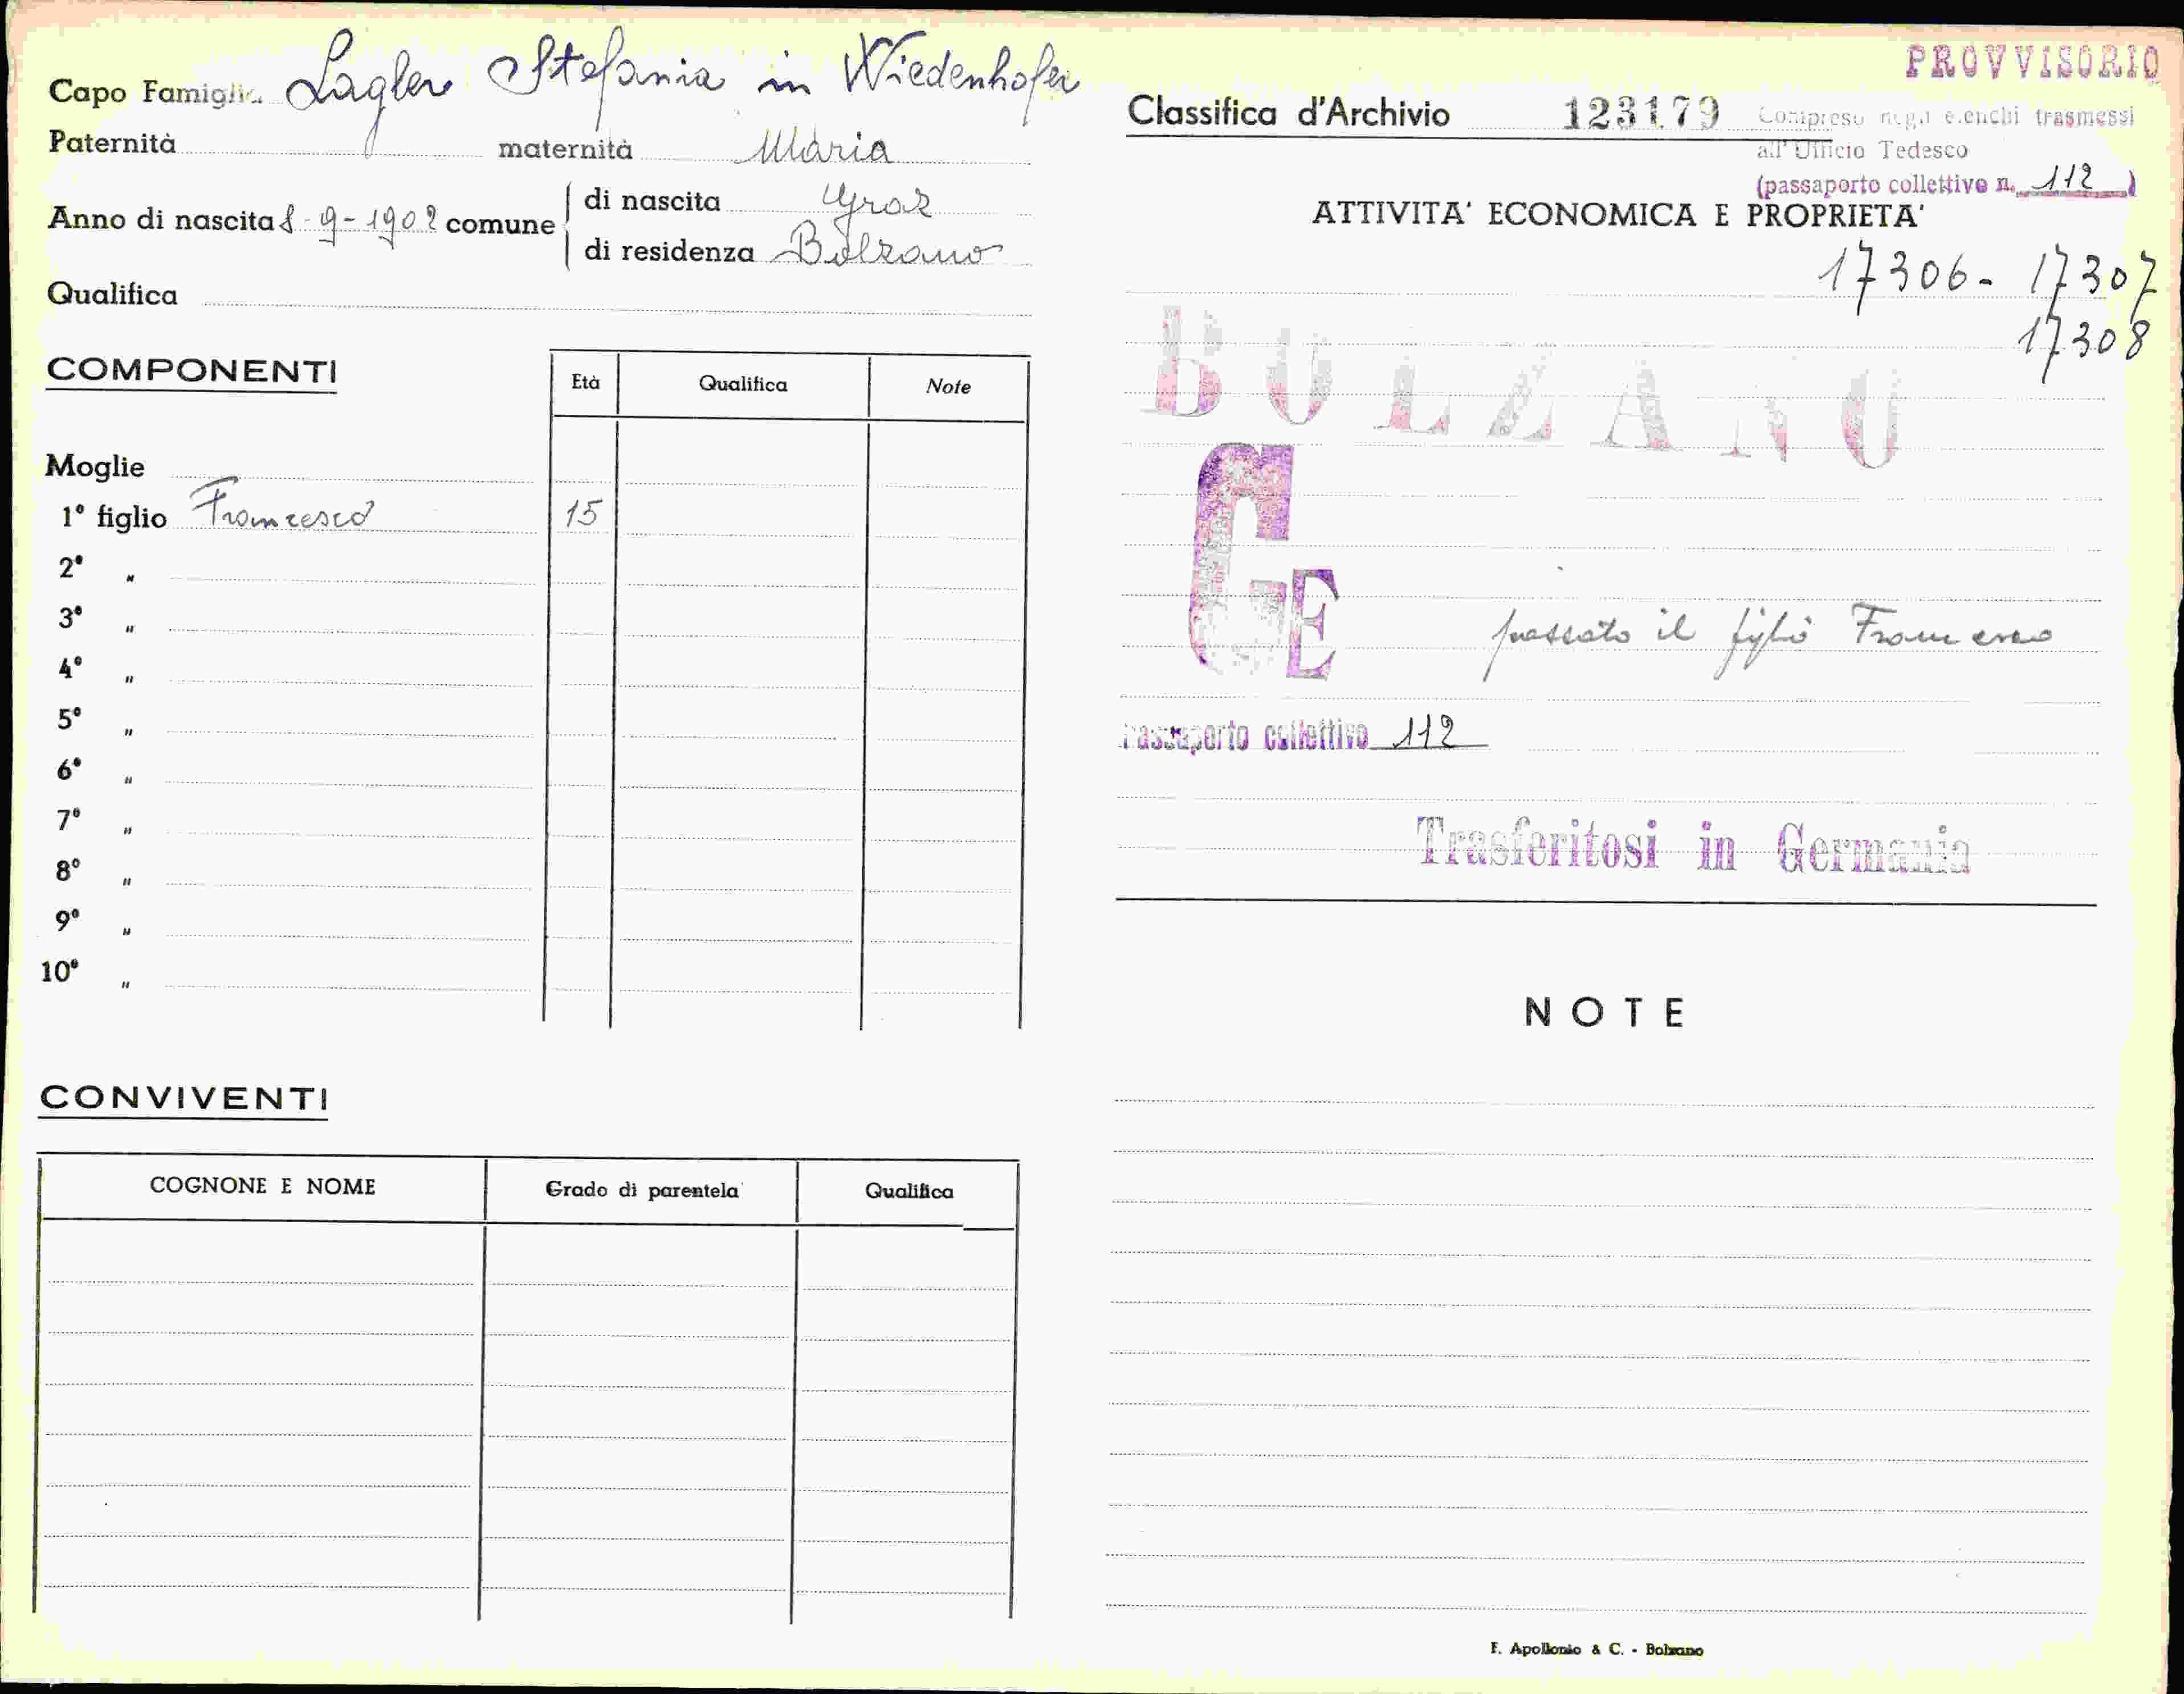 Capo Famiglia Lagler Stefania in Wiedenhofer
Paternità maternità Maria
Anno di nascita 8-9-1902 comune
di nascita Graz
di residenza Bolzano
Qualifica
COMPONENTI
Età Qualifica Note
Moglie
1° figlio Francesco 15
2° "
3° "
4° "
5° "
6° "
7° "
8° "
9° "
10° "
CONVIVENTI
COGNONE E NOME Grado di parentela Qualifica
PROVVISORIO
Classifica d'Archivio 123179 Compreso negli elenchi trasmessi
all'Ufficio Tedesco
(passaporto collettivo n. 112)
ATTIVITA' ECONOMICA E PROPRIETA'
17306- 17307
17308
BOLZANO
GE
passato il figlio Francesco
Passaporto collettivo 112
Trasferitosi in Germania
NOTE
F. Apollonio & C. - Bolzano